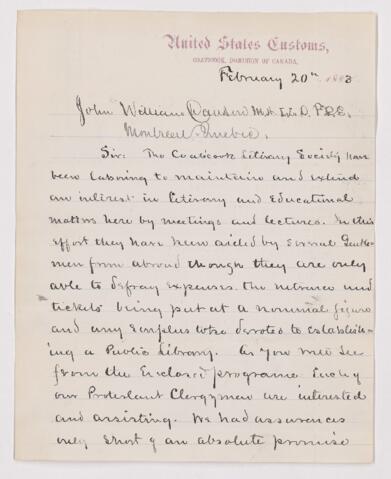 United States Customs,
COATICOOK, DOMINION OF CANADA.
February 20th 1883
John William Dawson M.A. L.L.D. F.R.S.
Montreal Quebec.
Sir: The Coaticook Literary Society have
been laboring to maintain and extend
an interest in Literary and Educational
matters here by meetings and lectures. In this
effort they have been aided by several Gentle-
men from abroad though they are only
able to defray expenses the entrance and
tickets being put at a nominal figure
and any surplus was devoted to establish-
ing a Public Library. As you will see
from the Enclosed programe
our Protestant Clergymen are interested
and assisting. We had assurances
only short of an absolute promise